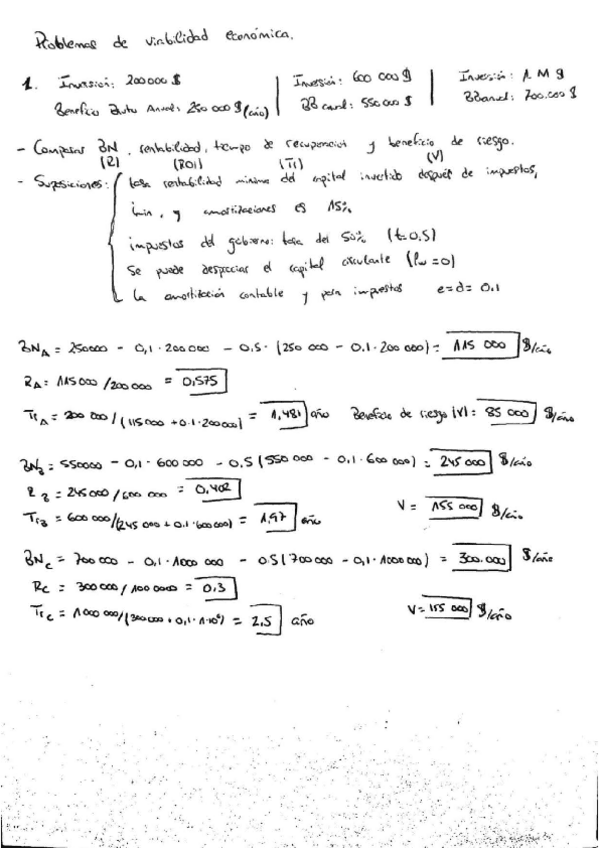 Problemas de viabilidad económica.
1. Inversión: 200000 $ | Inversión: 600 000 $ | Inversión: 1 M $
Beneficio Bruto Anual: 250 000 $ (/año) | BB anual: 550 000 $ | BB anual: 700.000 $
- Comparar BN, rentabilidad, tiempo de recuperación y beneficio de riesgo.
(R) (ROI) (Tr) (V)
- Suposiciones: tasa rentabilidad mínima del capital invertido después de impuestos,
imin, y amortizaciones es 15%
impuestos del gobierno: tasa del 50% (t=0.5)
Se puede despreciar el capital circulante (Iw=0)
La amortización contable y para impuestos e=d= 0.1
BN_A = 250000 - 0,1 · 200 000 - 0.5 · (250 000 - 0.1 · 200 000) = 115 000 $/año
R_A = 115 000 / 200 000 = 0,575
Tr_A = 200 000 / (115 000 + 0.1 · 200000) = 1,481 año Beneficio de riesgo (V) = 85 000 $/año
BN_B = 550000 - 0,1 · 600 000 - 0.5 (550 000 - 0.1 · 600 000) = 245 000 $/año
R_B = 245 000 / 600 000 = 0.402
Tr_B = 600 000 / (245 000 + 0.1 · 600000) = 1,97 año V = 155 000 $/año
BN_C = 700 000 - 0,1 · 1000 000 - 0.5 (700 000 - 0,1 · 1000 000) = 300.000 $/año
R_C = 300 000 / 100 0000 = 0.3
Tr_C = 1 000 000 / (300 000 + 0,1 · 1·10⁶) = 2.5 año V = 155 000 $/año